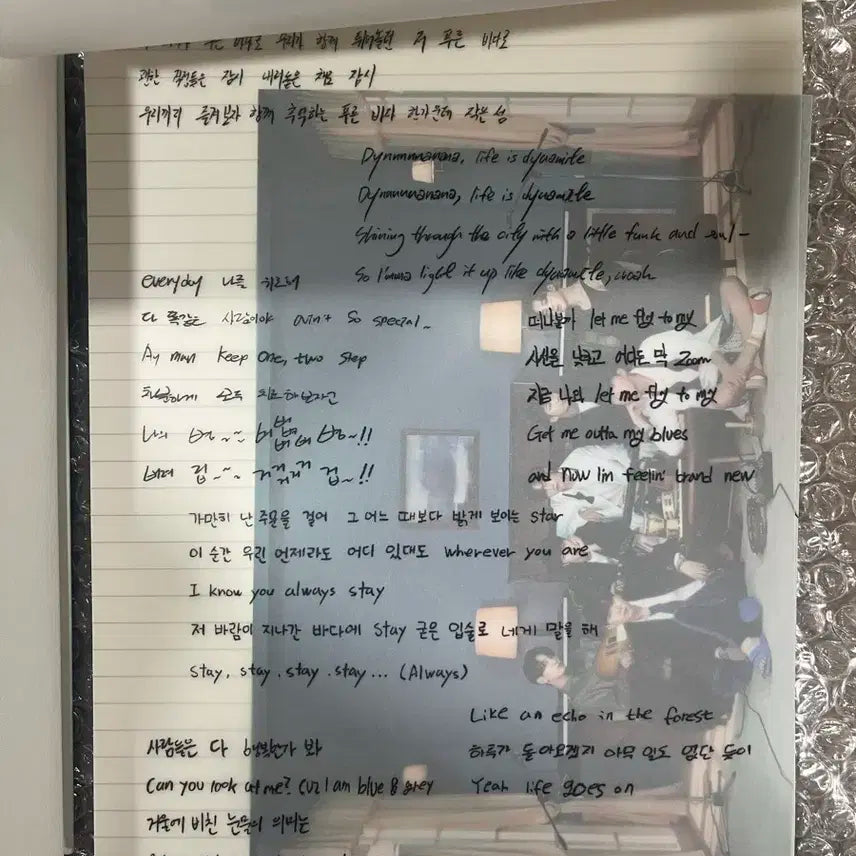 푸른 바다로 우리가 함께 뛰어놀던 저 푸른 바다로
괜한 걱정들은 잠시 내려놓은 채로 잠시
우리끼리 즐겨보자 함께 추억하는 푸른 바다 한가운데 작은 섬
Dynnnnnanana, life is dynamite
Dynnnnnanana, life is dynamite
Shining through the city with a little funk and soul-
So I'mma light it up like dynamite, woah
everyday 나를 위로해
다 똑같은 사람이야 ain't so special~
Ay man keep one, two step
차분하게 모두 치료해 보자고
나의 병~~ 병~!!
겁~~ 겁~!!
떠나볼까 let me fly to my
시선을 낮추고 어디든 막 zoom
지금 나와 let me fly to my
Got me outta my blues
and now I'm feelin' brand new
가만히 난 주문을 걸어 그 어느 때보다 밝게 보이는 star
이 순간 우린 언제라도 어디 있대도 wherever you are
I know you always stay
저 바람이 지나간 바다에 stay 굳은 입술로 네게 말을 해
stay, stay. stay. stay... (Always)
Like an echo in the forest
하루가 돌아오겠지 아무 일도 없단 듯이
Yeah life goes on
사람들은 다 행복한가 봐
Can you look at me? Cuz I am blue & grey
거울에 비친 눈물의 의미는